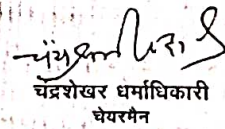 चंद्रशेखर धर्माधिकारी
चेयरमैन